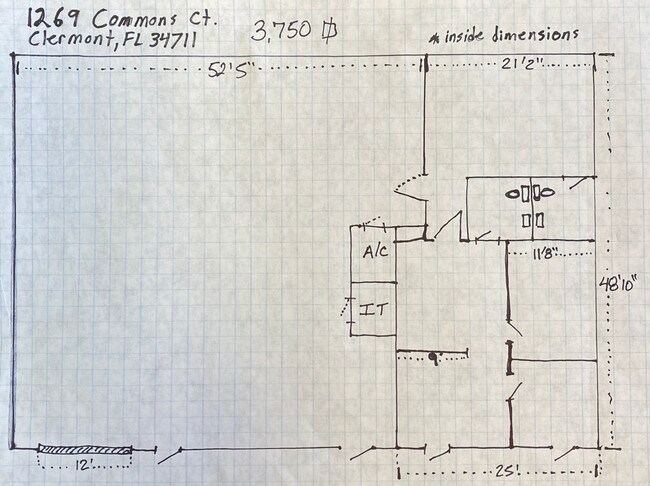 1269 Commons Ct.
Clermont, FL 34711
3,750
* inside dimensions
52'5"
21'2"
A/C
11'8"
48'10"
IT
9'
12'
25'